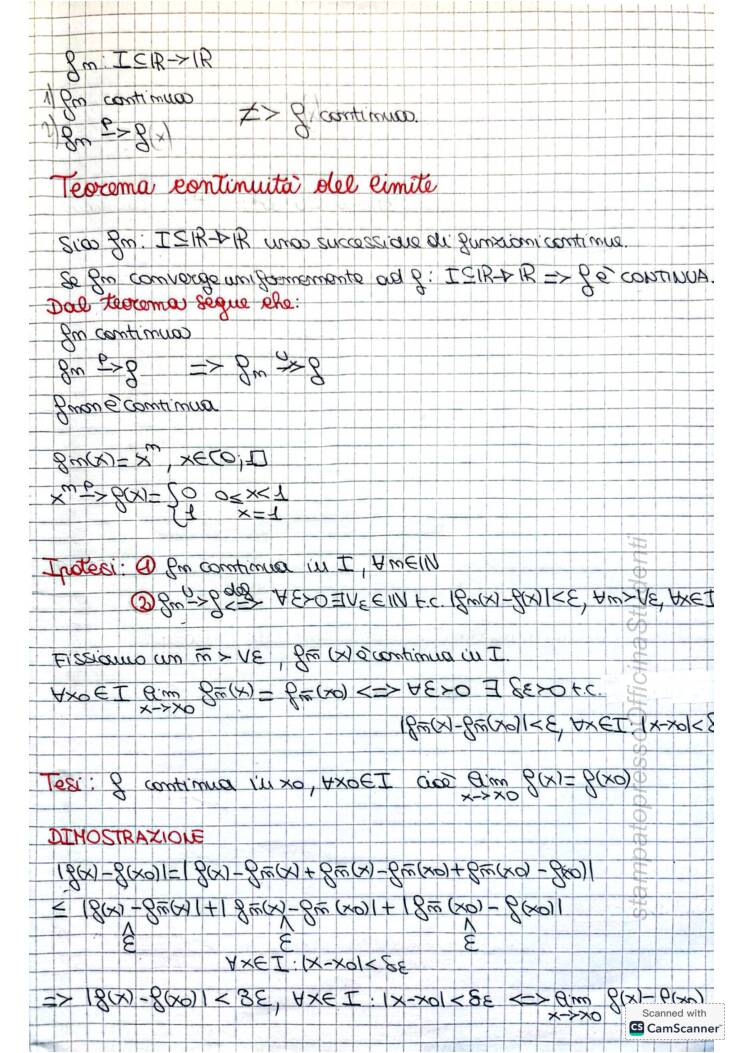 fn: I⊆ℝ→ℝ
1) fn continua
≠> f continua.
2) fn P-> f(x)
Teorema continuità del limite
Sia fn: I⊆ℝ→ℝ una successione di funzioni continue.
Se fn converge uniformemente ad f: I⊆ℝ→ℝ => f è CONTINUA.
Dal teorema segue che:
fn continua
fn P-> f => fn U≯> f
f non è continua
fn(x)=xⁿ, x∈[0;1]
xⁿ P-> f(x)= { 0 0≤x<1
1 x=1
Ipotesi: ① fn continua in I, ∀n∈ℕ
② fn U-> f def<=> ∀ε>0 ∃Vε∈ℕ t.c. |fn(x)-f(x)|<ε, ∀n>Vε, ∀x∈I
Fissiamo un n̄ > Vε, fn̄(x) è continua in I.
∀x0∈I lim x->x0 fn̄(x) = fn̄(x0) <=> ∀ε>0 ∃ δε>0 t.c.
|fn̄(x)-fn̄(x0)|<ε, ∀x∈I: |x-x0|<δ
Tesi: f continua in x0, ∀x0∈I cioè lim x->x0 f(x)= f(x0)
DIMOSTRAZIONE
|f(x)-f(x0)|=|f(x)-fn̄(x)+fn̄(x)-fn̄(x0)+fn̄(x0)-f(x0)|
≤ |f(x)-fn̄(x)|+|fn̄(x)-fn̄(x0)|+|fn̄(x0)-f(x0)|
^ ^ ^
ε ε ε
∀x∈I: |x-x0|<δε
=> |f(x)-f(x0)| < 3ε, ∀x∈I: |x-x0|<δε <=> lim x->x0 f(x)=f(x0)
stampatopressoOfficinaStudenti
Scanned with
CS CamScanner